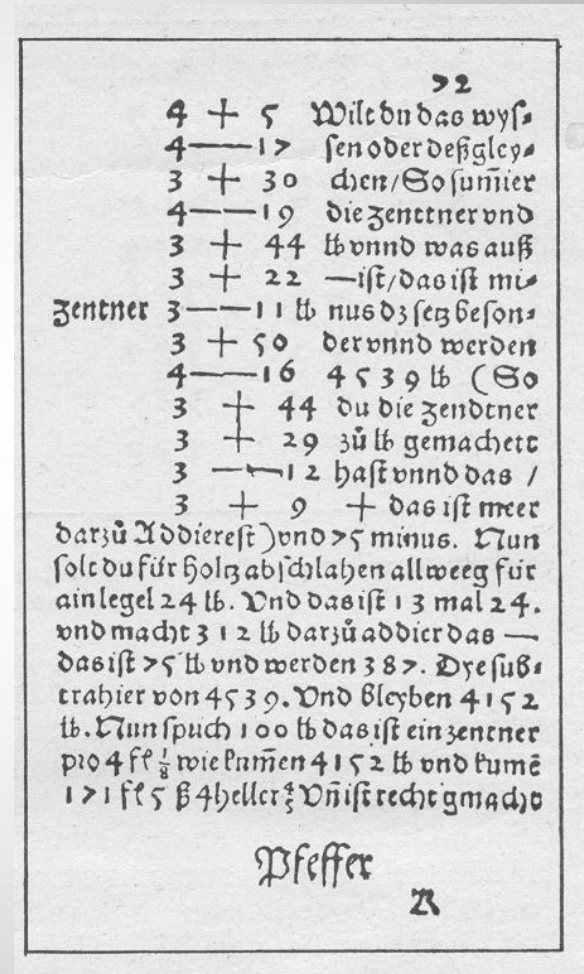 72
4 + 5 Wilt du das wys⸗
4——17 sen oder deßgley⸗
3 + 30 chen/So sum̄ier
4——19 die Zenttner vnd
3 + 44 lb vnnd was auß
3 + 22 —ist/das ist mi⸗
Zentner 3——11 lb nus dz setz beson⸗
3 + 50 der vnnd werden
4——16 4539 lb (So
3 + 44 du die Zendtner
3 + 29 zů lb gemachett
3 ——12 hast vnnd das /
3 + 9 + das ist meer
darzů Addierest) vnd 75 minus. Nun
solt du für Holtz abschlahen allweeg für
ain legel 24 lb. Vnd das ist 13 mal 24.
vnd macht 312 lb darzů addier das —
das ist 75 lb vnd werden 387. Dye sub⸗
trahier von 4539. Vnd bleyben 4152
lb. Nun sprich 100 lb das ist ein zentner
pro 4 fl 1/8 wie kum̄en 4152 lb vnd kumē
171 fl 5 ß 4 heller 4/5 Vn̄ ist recht gmacht
Pfeffer
R